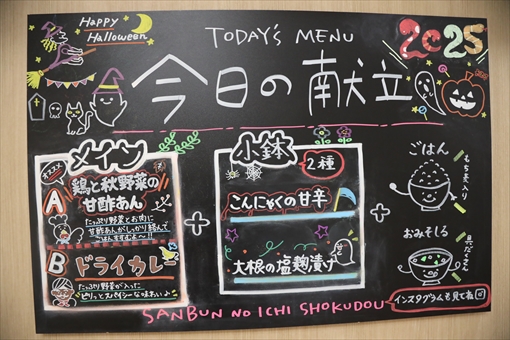 Happy
Halloween
TODAY'S MENU
2025
今日の献立
メイン
オススメ
A
鶏と秋野菜の
甘酢あん
たっぷり野菜とお肉に
甘酢あんがしっかり絡んで
ごはんすすむよ〜!!
B
ドライカレー
たっぷり野菜が入った
ピリッとスパイシーな味わい♪
+
小鉢
2種
こんにゃくの甘辛
大根の塩麹漬け
+
ごはん
もち麦入り
おみそしる
具だくさん
SANBUN NO ICHI SHOKUDOU
インスタグラムも見てね